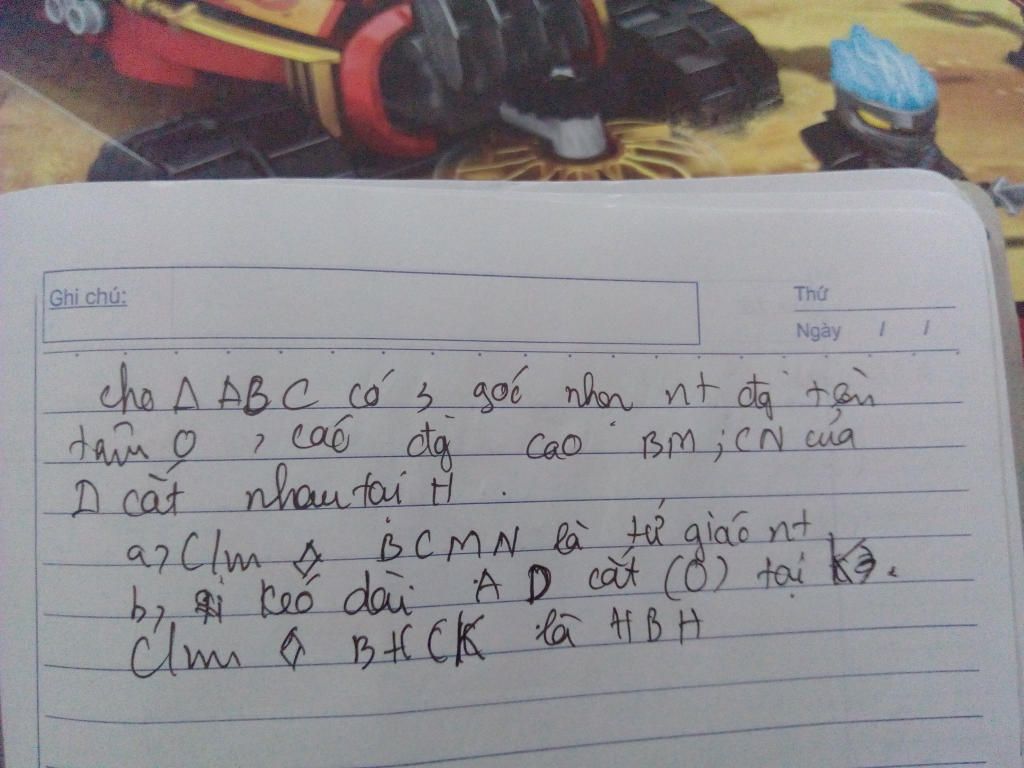 Ghi chú:
Thứ
Ngày / /
cho Δ ABC có 3 góc nhọn nt đg tròn
tâm O , các đg cao BM ; CN của
Δ cắt nhau tại H .
a, C/m ◇ BCMN là tứ giác nt
b, kéo dài A O cắt (O) tại K .
C/m ◇ BHCK là HBH